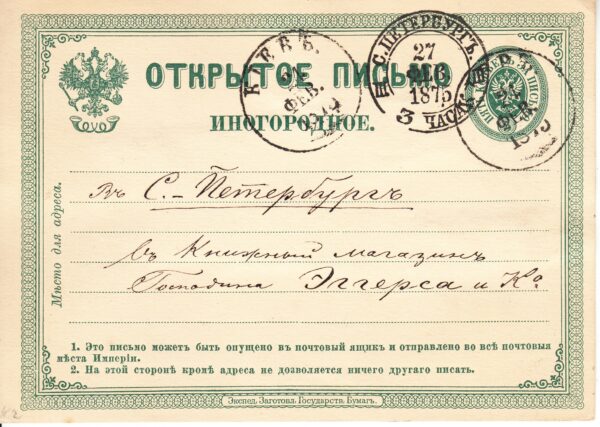 ОТКРЫТОЕ ПИСЬМО
ИНОГОРОДНОЕ.
КІЕВЪ.
ФЕВ.
С.ПЕТЕРБУРГЪ.
27
ФЕВ
1875
3 ЧАСА
ФЕВ.
1875
Мѣсто для адреса.
Въ С.-Петербургъ
въ Книжный магазинъ
Господина Эггерса и Ко.
1. Это письмо можетъ быть опущено въ почтовый ящикъ и отправлено во всѣ почтовыя
мѣста Имперіи.
2. На этой сторонѣ кромѣ адреса не дозволяется ничего другаго писать.
Экспед. Заготовл. Государств. Бумагъ.